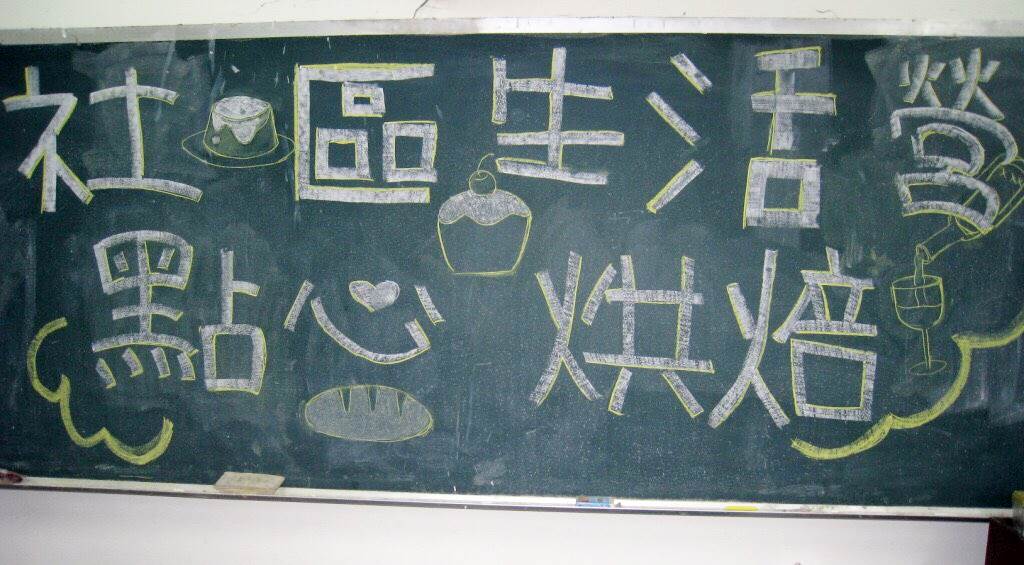 社區生活營
點心烘焙